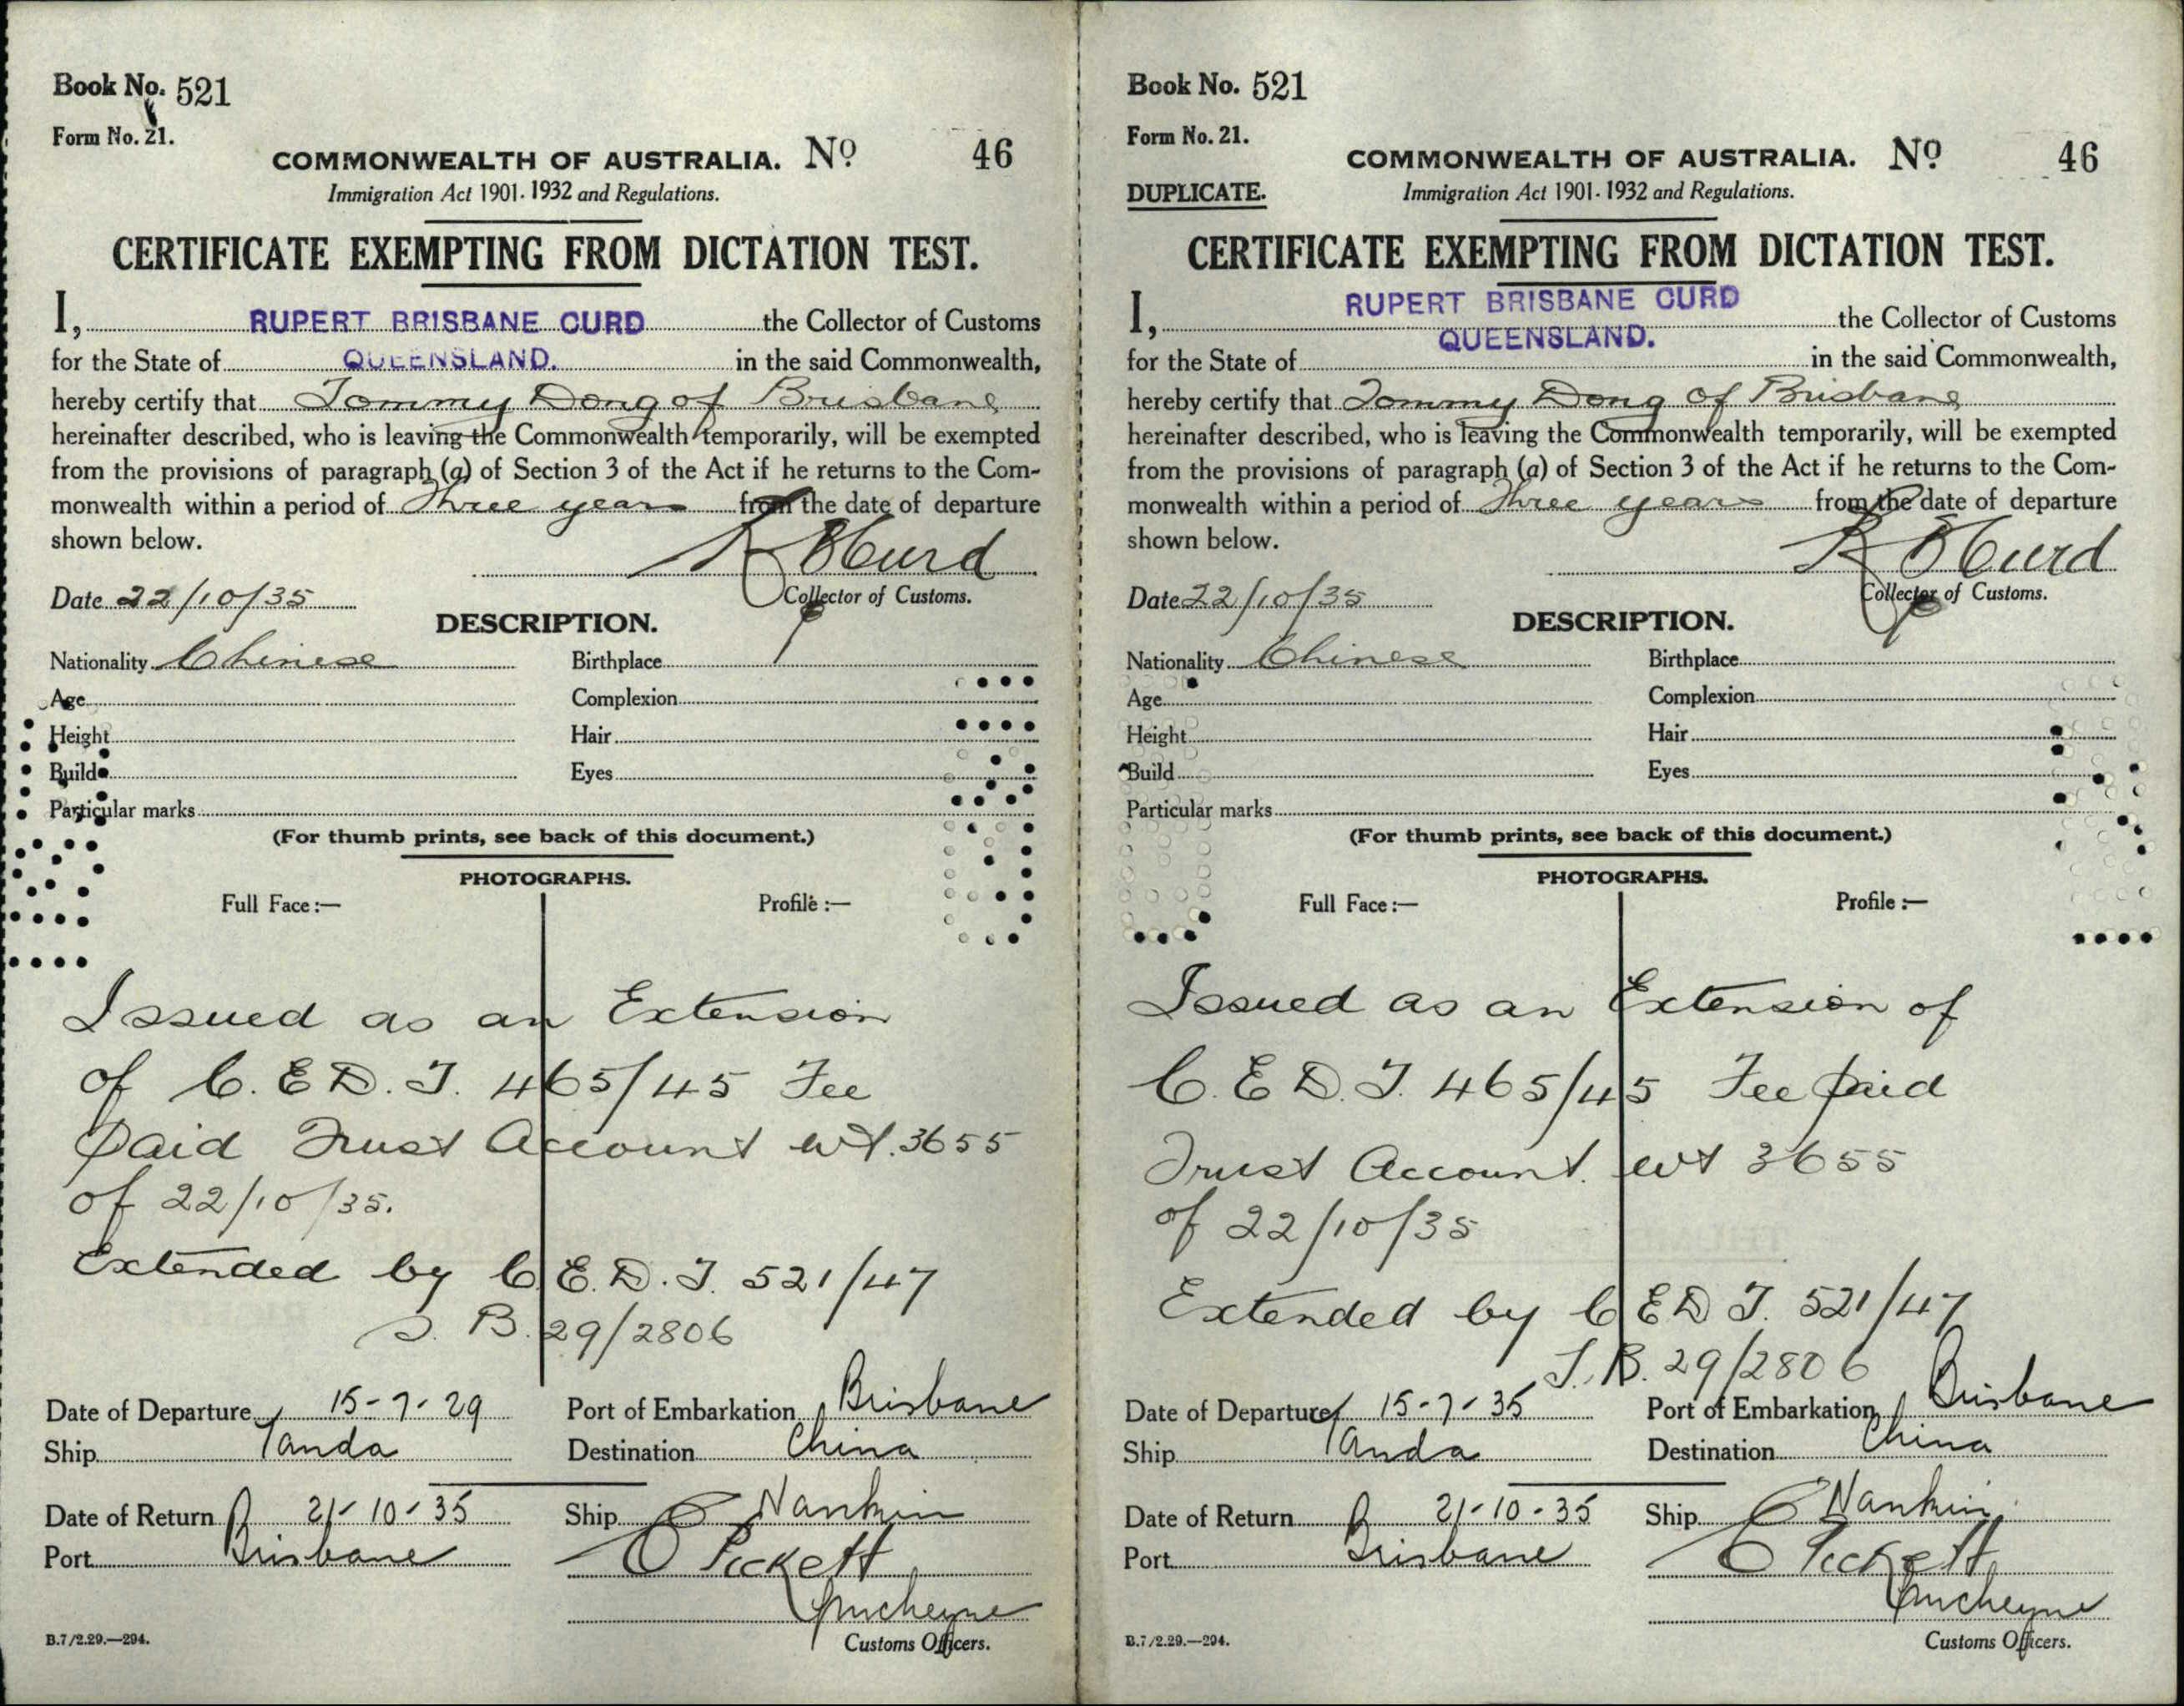 Book No. 521
Form No. 21.
COMMONWEALTH OF AUSTRALIA. Nº 46
Immigration Act 1901-1932 and Regulations.
CERTIFICATE EXEMPTING FROM DICTATION TEST.
I, RUPERT BRISBANE CURD the Collector of Customs
for the State of QUEENSLAND. in the said Commonwealth,
hereby certify that Tommy Dong of Brisbane
hereinafter described, who is leaving the Commonwealth temporarily, will be exempted
from the provisions of paragraph (a) of Section 3 of the Act if he returns to the Com-
monwealth within a period of Three years from the date of departure
shown below.
R B Curd
Date 22/10/35 Collector of Customs.
DESCRIPTION.
Nationality Chinese Birthplace
Age Complexion
Height Hair
Build Eyes
Particular marks
(For thumb prints, see back of this document.)
PHOTOGRAPHS.
Full Face:— Profile:—
Issued as an Extension
of C.E.D.T. 465/45 Fee
paid Trust Account wt. 3655
of 22/10/35.
Extended by C.E.D.T. 521/47
S. B. 29/2806
Date of Departure 15-7-29 Port of Embarkation Brisbane
Ship Tanda Destination China
Date of Return 21-10-35 Ship Nankin
Port Brisbane Pickett
B.7/2.29.—294. Customs Officers.
Book No. 521
Form No. 21.
COMMONWEALTH OF AUSTRALIA. Nº 46
DUPLICATE. Immigration Act 1901-1932 and Regulations.
CERTIFICATE EXEMPTING FROM DICTATION TEST.
I, RUPERT BRISBANE CURD the Collector of Customs
for the State of QUEENSLAND. in the said Commonwealth,
hereby certify that Tommy Dong of Brisbane
hereinafter described, who is leaving the Commonwealth temporarily, will be exempted
from the provisions of paragraph (a) of Section 3 of the Act if he returns to the Com-
monwealth within a period of Three years from the date of departure
shown below.
R B Curd
Date 22/10/35 Collector of Customs.
DESCRIPTION.
Nationality Chinese Birthplace
Age Complexion
Height Hair
Build Eyes
Particular marks
(For thumb prints, see back of this document.)
PHOTOGRAPHS.
Full Face:— Profile:—
Issued as an Extension of
C.E.D.T. 465/45 Fee paid
Trust Account. wt 3655
of 22/10/35
Extended by C E D T. 521/47
S.B. 29/2806
Date of Departure 15-7-35 Port of Embarkation Brisbane
Ship Tanda Destination China
Date of Return 21-10-35 Ship Nankin
Port Brisbane Pickett
B.7/2.29.—294. Customs Officers.